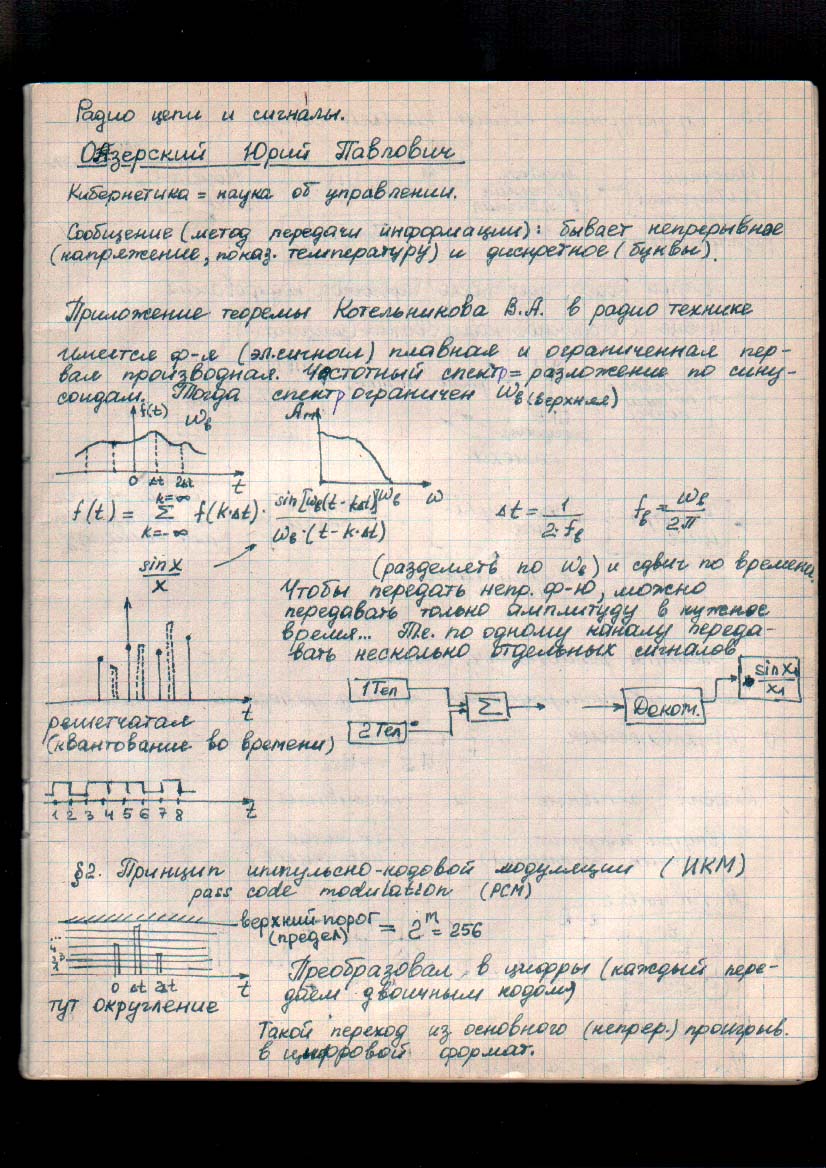 Радио цепи и сигналы.
Озерский Юрий Павлович
Кибернетика = наука об управлении.
Сообщение (метод передачи информации): бывает непрерывное
(напряжение, показ. температуру) и дискретное (буквы).
Приложение теоремы Котельникова В.А. в радио технике
Имеется ф-я (эл.сигнал) плавная и ограниченная пер-
вая производная. Частотный спектр = разложение по сину-
соидам. Тогда спектр ограничен ω_в (верхняя)
f(t) ω_в A_m
0 Δt 2Δt t ω_в ω
f(t) = Σ_{k=-∞}^{k=∞} f(k·Δt) · sin[ω_в(t-kΔt)] / ω_в·(t-k·Δt) Δt = 1/(2·f_в) f_в = ω_в/2π
sin x / x
(разделять по ω_в) и сдвиг по времени.
Чтобы передать непр. ф-ю, можно
передавать только амплитуду в нужное
время... Т.е. по одному каналу переда-
вать несколько отдельных сигналов
t
решетчатая
(квантование во времени)
1 Тел
2 Тел
Σ
sin x₁ / x₁
1 2 3 4 5 6 7 8 t
§2. Принцип импульсно-кодовой модуляции (ИКМ)
pass code modulation (PCM)
верхний порог
(предел) = 2^m = 256
0 Δt 2Δt t
тут округление
Преобразовал в цифры (каждый пере-
даём двоичным кодом)
Такой переход из основного (непрер.) проигрыв.
в цифровой формат.